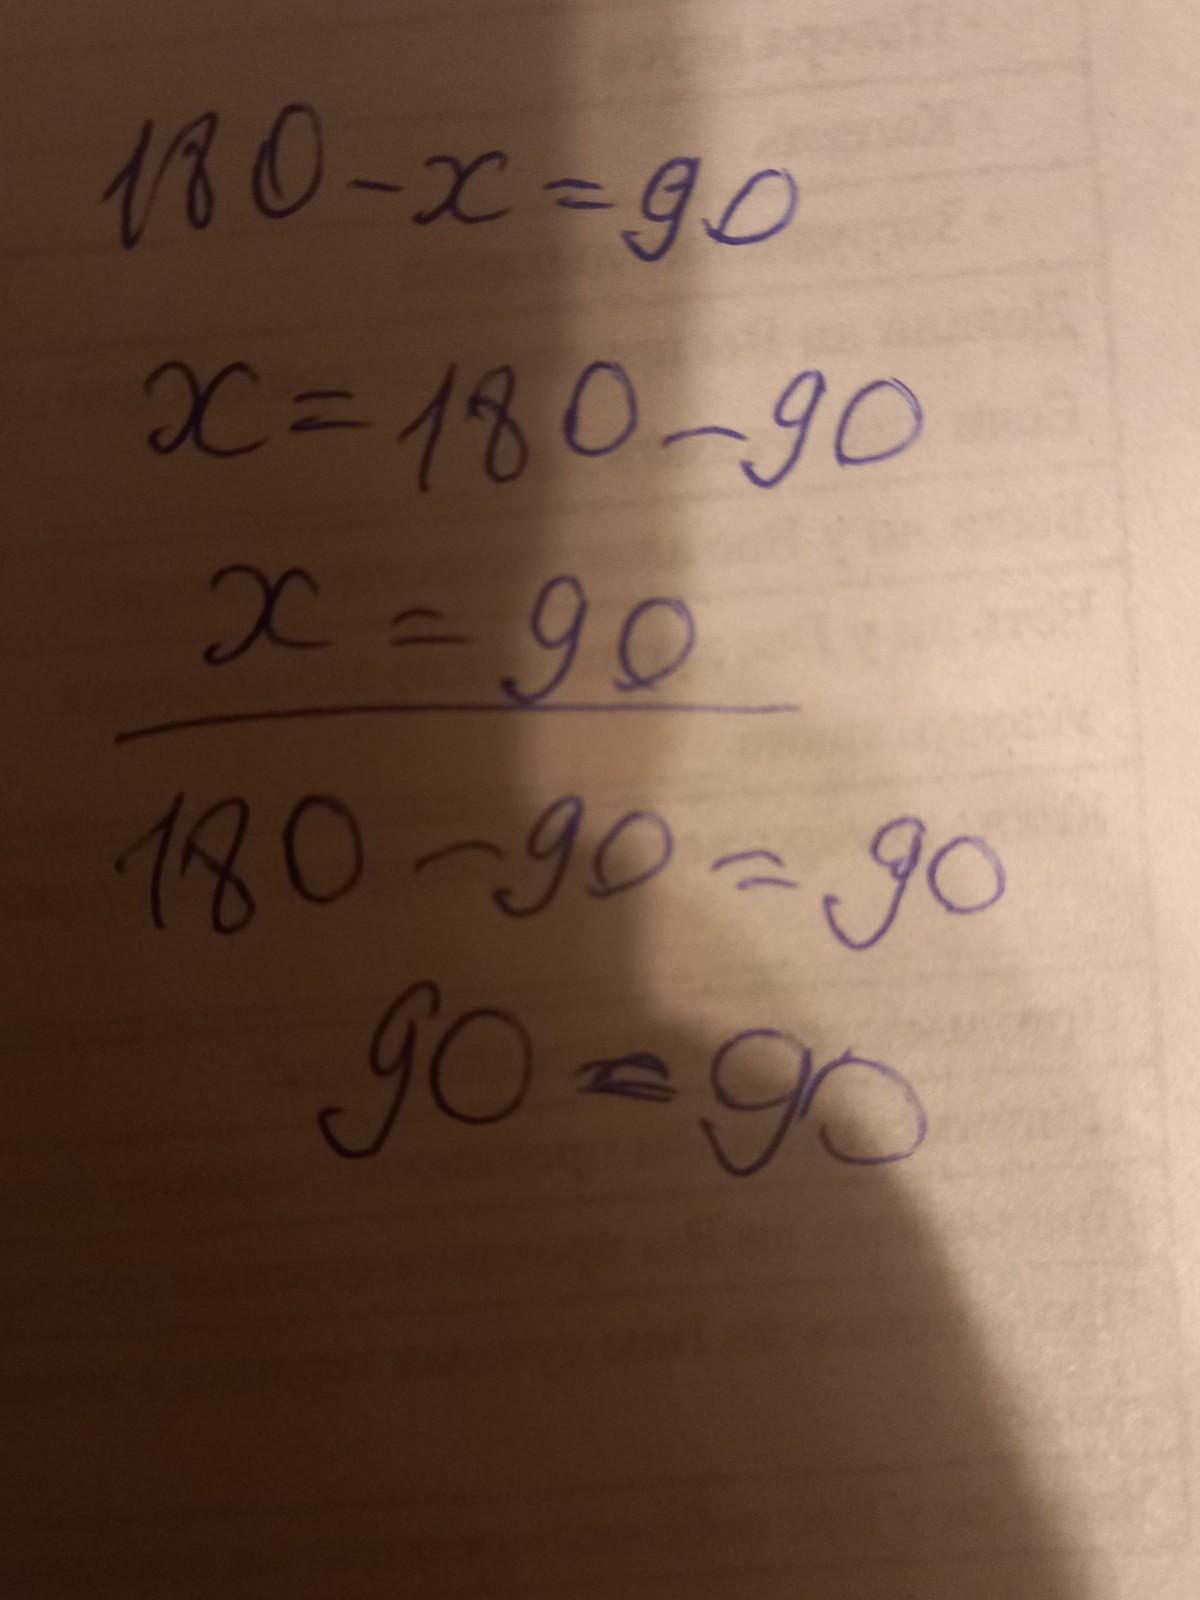 180 - x = 90
x = 180 - 90
x = 90
180 - 90 = 90
90 = 90